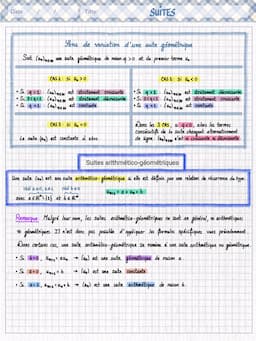 Date
Titre
SUITES
Sens de variation d'une suite géométrique
Soit (uₙ)ₙ∈ℕ une suite géométrique de raison q > 0 et de premier terme u₀
CAS 1 si u₀ > 0
• Si q > 1 (uₙ)ₙ∈ℕ est strictement croissante
• Si 0 < q < 1 (uₙ)ₙ∈ℕ est strictement décroissante
• Si q = 1 (uₙ)ₙ∈ℕ est constante
CAS 2 si u₀ < 0
• Si q > 1 (uₙ)ₙ∈ℕ est strictement décroissante
• Si 0 < q < 1 (uₙ)ₙ∈ℕ est strictement croissante
• Si q = 1 (uₙ)ₙ∈ℕ est constante
La suite (uₙ) est constante à zéro
Dans les 3 CAS, si q < 0, alors les termes
consécutifs de la suite changent alternativement
de signe. (uₙ)ₙ∈ℕ n'est ni croissante ni décroissante
Suites arithmético-géométriques
Une suite (uₙ) est une suite arithmético-géométrique si elle est définie par une relation de récurrence du type
uₙ₊₁ = a × uₙ + b
avec
Remarque Malgré leur nom, les suites arithmético-géométriques ne sont en général, ni arithmétiques
ni géométriques. Il n'est donc pas possible d'appliquer les formules spécifiques vues précédemment.
Dans certains cas, une suite arithmético-géométrique se ramène à une suite arithmétique ou géométrique.
• Si b = 0, uₙ₊₁ = auₙ → (uₙ) est une suite géométrique de raison a.
• Si a = 0, uₙ₊₁ = b → (uₙ) est une suite constante
• Si a = 1, uₙ₊₁ = uₙ + b → (uₙ) est une suite arithmétique de raison b.